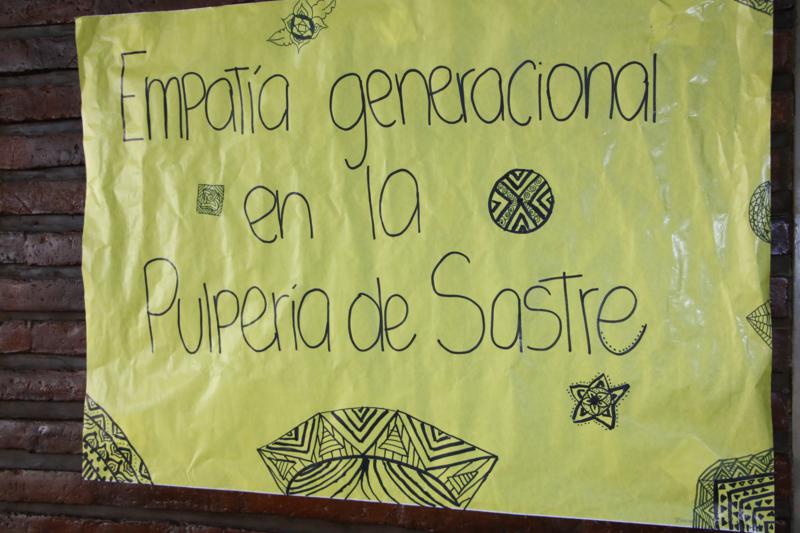 Empatía generacional
en la
Pulpería de Sastre